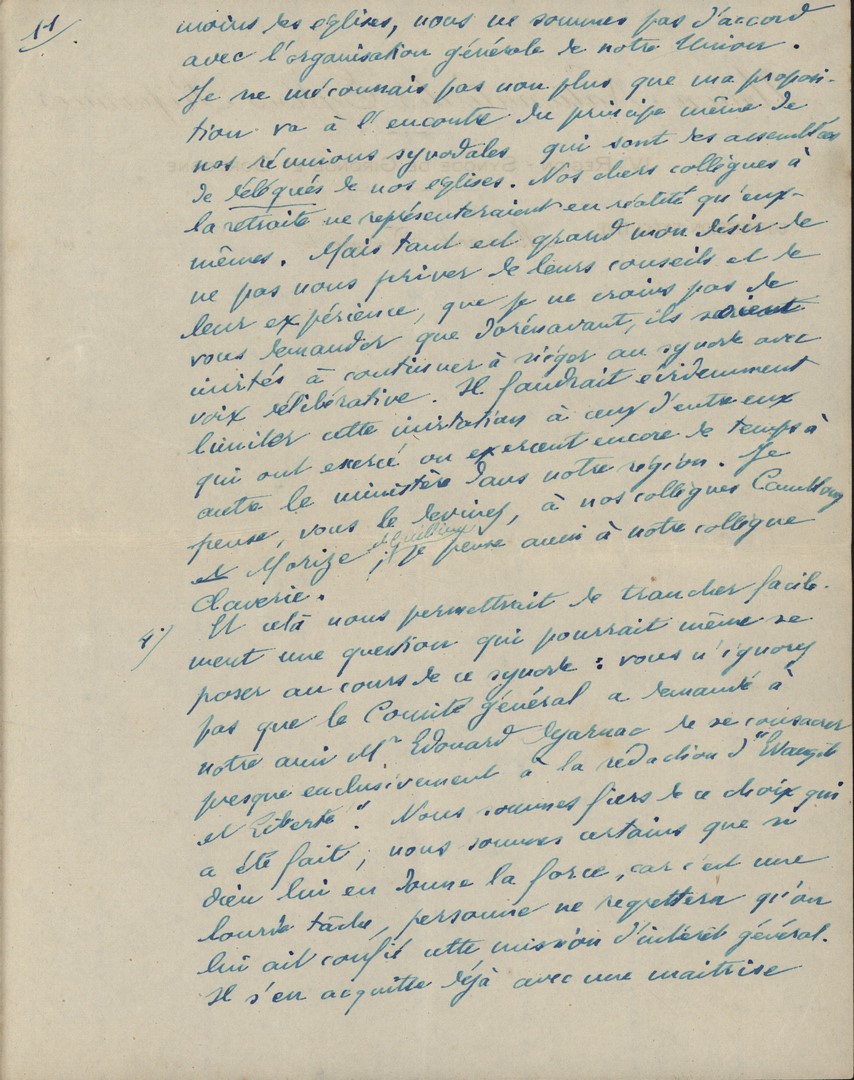 11/
moins des églises, nous ne sommes pas d'accord
avec l'organisation générale de notre Union.
Je ne méconnais pas non plus que ma proposi-
tion va à l'encontre du principe même de
nos réunions synodales qui sont des assemblées
de délégués de nos églises. Nos chers collègues à
la retraite ne représenteraient en réalité qu'eux-
mêmes. Mais tant est grand mon désir de
ne pas nous priver de leurs conseils et de
leur expérience, que je ne crains pas de
vous demander que dorénavant, ils soient
invités à continuer à siéger au synode avec
voix délibérative. Il faudrait évidemment
limiter cette invitation à ceux d'entre eux
qui ont exercé ou exercent encore de temps à
autre le ministère dans notre région. Je
pense, vous le devinez, à nos collègues
et Morize ; je pense aussi à notre collègue
Claverie.
4°) Et celà nous permettrait de trancher facile-
ment une question qui pourrait même se
poser au cours de ce synode : vous n'ignorez
pas que le Comité général a demandé à
notre ami Mr Edouard de se consacrer
presque exclusivement à la rédaction d'"Evangile
et Liberté". Nous sommes fiers de ce choix qui
a été fait, nous sommes certains que si
Dieu lui en donne la force, car c'est une
lourde tâche, personne ne regrettera qu'on
lui ait confié cette mission d'intérêt général.
Il s'en acquitte déjà avec une maitrise